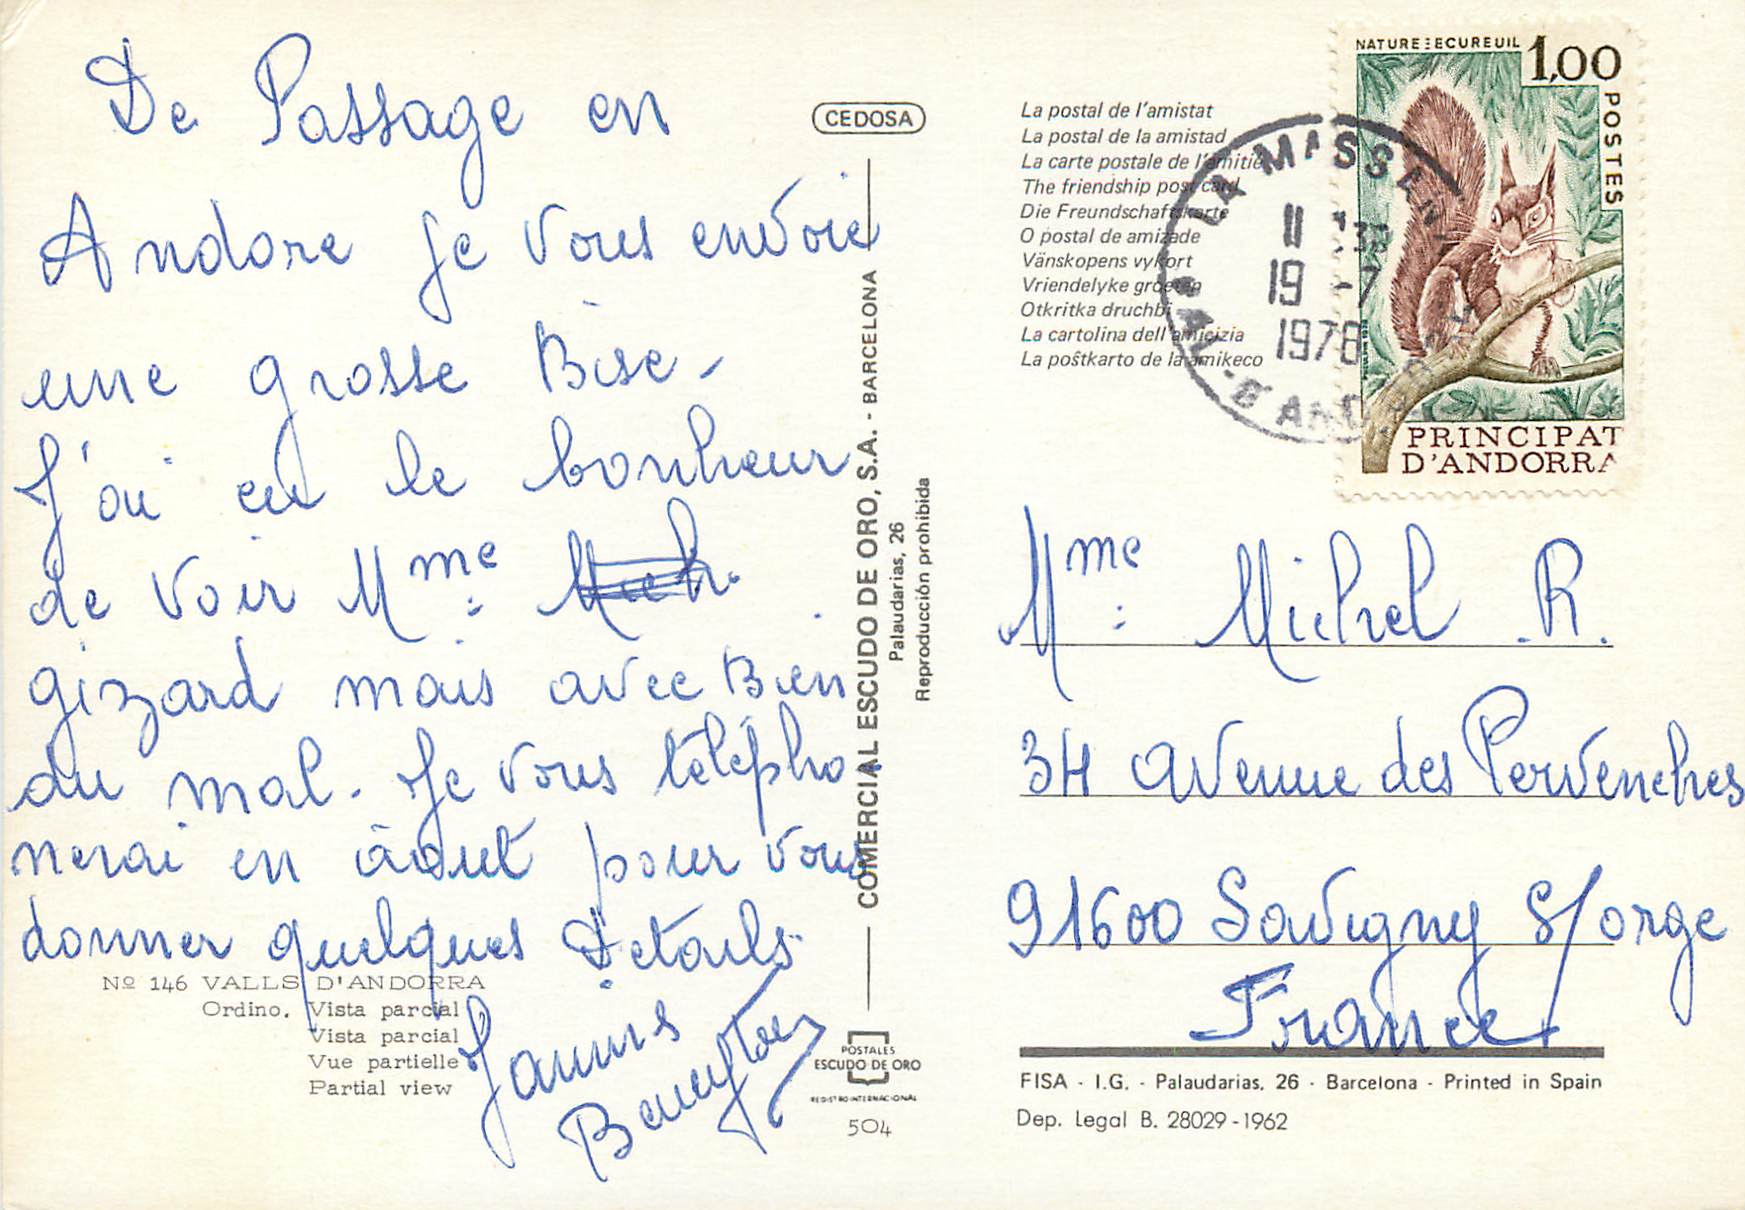 De Passage en
Andore je vous envoie
une grosse Bise -
J'ai eu le bonheur
de voir Mme :
gizard mais avec Bien
du mal. Je vous télépho
nerai en àout pour vous
donner quelques Details.
Nº 146 VALLS D'ANDORRA
Ordino. Vista parcial
Vista parcial
Vue partielle
Partial view
CEDOSA
COMERCIAL ESCUDO DE ORO, S.A. - BARCELONA
Palaudarias, 26
Reproducción prohibida
POSTALES
ESCUDO DE ORO
REGISTRO INTERNACIONAL
504
La postal de l'amistat
La postal de la amistad
La carte postale de l'amitié
The friendship post card
Die Freundschaftskarte
O postal de amizade
Vänskopens vykort
Vriendelyke groeten
Otkritka druchbi
La cartolina dell'amicizia
La poŝtkarto de la amikeco
LA MASSANA
11 H30
19 -7
1978
VAL D'ANDORRE
NATURE : ECUREUIL
1,00
POSTES
PRINCIPAT
D'ANDORRA
Mme : Michel R.
34 avenue des Pervenches
91600 Savigny S/orge
France
FISA - I.G. - Palaudarias, 26 - Barcelona - Printed in Spain
Dep. Legal B. 28029-1962